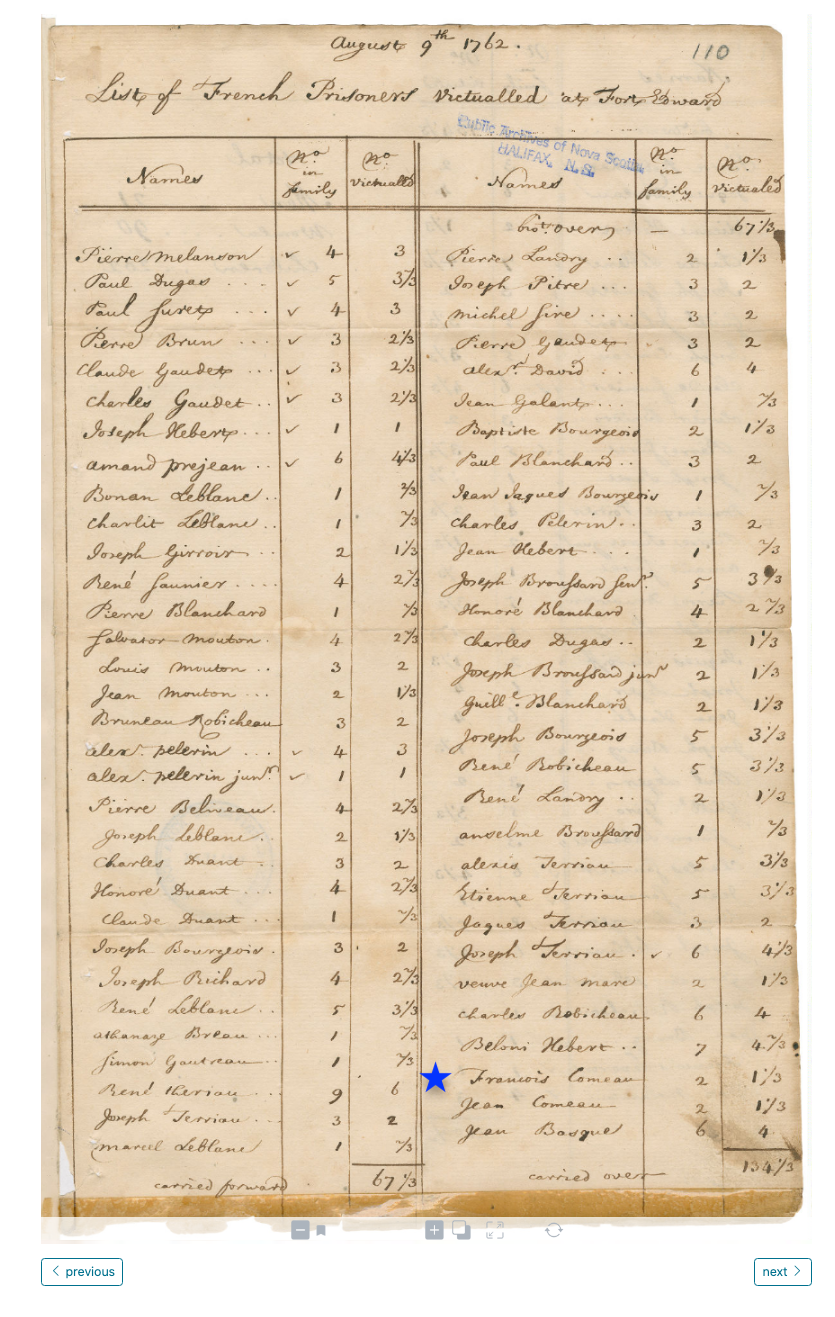 August 9th 1762.
110
List of French Prisoners victualled at Fort Edward
Public Archives of Nova Scotia
HALIFAX, N.S.
Names No in family No victualled Names No in family No victualed
bro.t over — 67 1/3
Pierre Melanson ✓ 4 3 Pierre Landry .. 2 1 1/3
Paul Dugas ... ✓ 5 3 2/3 Joseph Pitre ... 3 2
Paul Surets ... ✓ 4 3 Michel Sire .... 3 2
Pierre Brun ... ✓ 3 2 1/3 Pierre Gaudets 3 2
Claude Gaudets ... ✓ 3 2 1/3 alexr. David ... 6 4
Charles Gaudet .. ✓ 3 2 1/3 Jean Galants ... 1 2/3
Joseph Heberts ... ✓ 1 1 Baptiste Bourgeois 2 1 1/3
amand prejean .. ✓ 6 4 1/3 Paul Blanchard .. 3 2
Bonan Leblanc .. 1 2/3 Jean Jaques Bourgeois 1 2/3
Charlit Leblanc .. 1 2/3 Charles Pelerin .. 3 2
Joseph Girroir .. 2 1 1/3 Jean Hebert ... 1 2/3
René Saunier .... 4 2 2/3 Joseph Broussard Senr. 5 3 1/3
Pierre Blanchard 1 2/3 Honoré Blanchard 4 2 2/3
Salvator Mouton . 4 2 2/3 Charles Dugas .. 2 1 1/3
Louis Mouton .. 3 2 Joseph Broussard junr 2 1 1/3
Jean Mouton ... 2 1 1/3 Guille. Blanchard 2 1 1/3
Bruneau Robicheau 3 2 Joseph Bourgeois 5 3 1/3
alexr. pelerin ... ✓ 4 3 René Robicheau 5 3 1/3
alexr. pelerin junr. ✓ 1 1 René Landry .. 2 1 1/3
Pierre Beliveau . 4 2 2/3 anselme Broussard 1 2/3
Joseph Leblanc .. 2 1 1/3 alexis Terriau 5 3 1/3
Charles Duant .. 3 2 Etienne Terriau 5 3 1/3
Honoré Duant ... 4 2 2/3 Jaques Terriau 3 2
Claude Duant ... 1 2/3 Joseph Terriau . ✓ 6 4 1/3
Joseph Bourgeois . 3 2 veuve Jean Mare 2 1 1/3
Joseph Richard 4 2 2/3 Charles Robicheau . 6 4
René Leblanc .. 5 3 1/3 Beloni Hebert .. 7 4 2/3
athanaze Breau ... 1 2/3 Francois Comeau 2 1 1/3
Simon Gautreau .. 1 2/3 Jean Comeau 2 1 1/3
René theriau ... 9 6 Jean Basque 6 4
Joseph Terriau ... 3 2
Marcel Leblanc 1 2/3
carried forward 67 1/3 carried over 134 1/3
previous
next